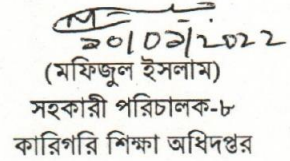 ২০/০২/২০২২
(মফিজুল ইসলাম)
সহকারী পরিচালক-৮
কারিগরি শিক্ষা অধিদপ্তর